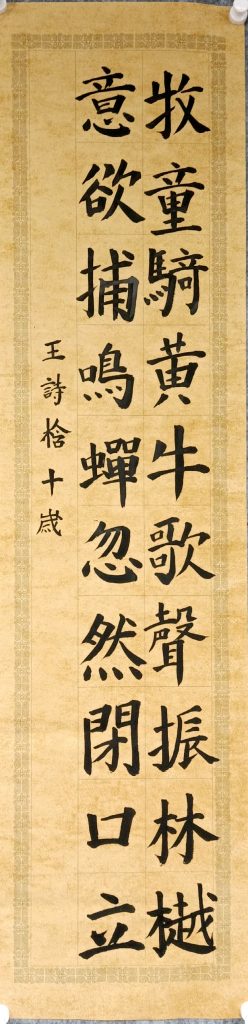 牧童騎黄牛歌聲振林樾
意欲捕鳴蟬忽然閉口立
王詩榕十歲